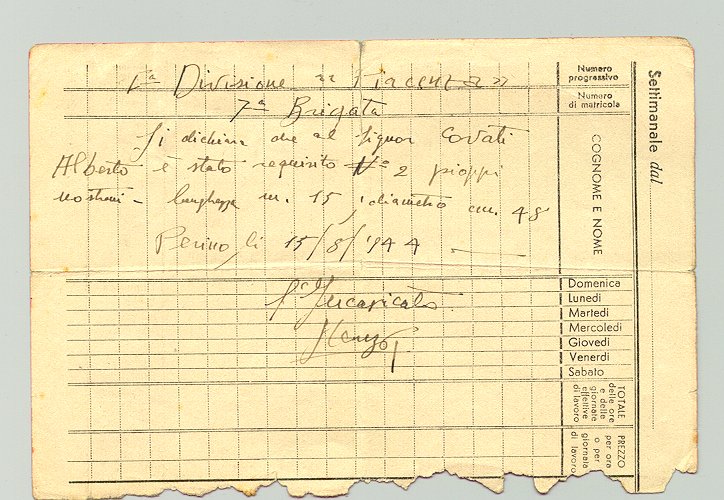 1ª Divisione "Piacenza"
7ª Brigata
Si dichiara che al Signor Covati
Alberto è stato requisito Nº 2 pioppi
nostrani - lunghezza m. 15, diametro cm. 48
Perino, li 15/8/944
L'Incaricato
Numero
progressivo
Numero
di matricola
COGNOME E NOME
Domenica
Lunedì
Martedì
Mercoledì
Giovedì
Venerdì
Sabato
TOTALE
delle ore
e delle
giornate
effettive
di lavoro
PREZZO
per ora
o per
giornata
di lavoro
Settimanale dal